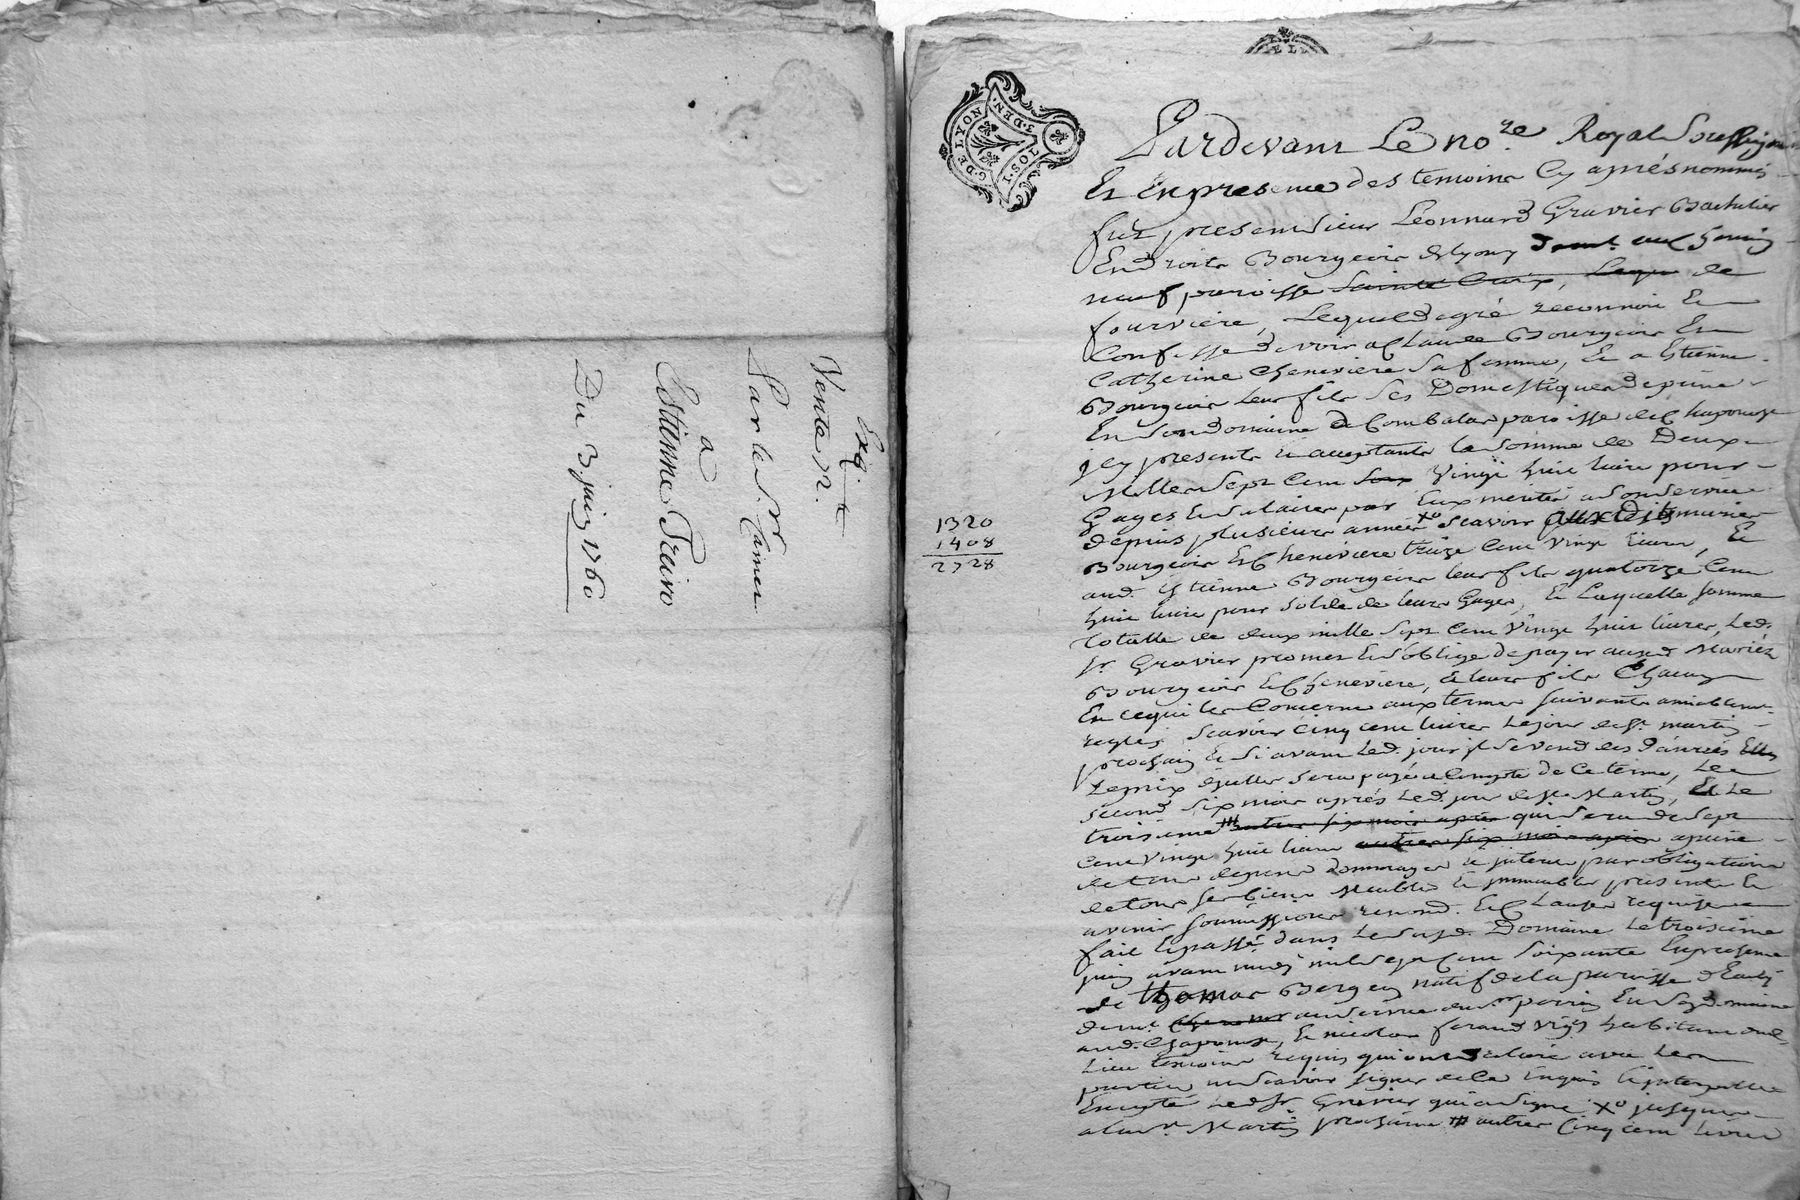 Exp.te
Vente n 2.
Par le S.r Camer
a
Estienne Preiro
Du 3 juin 1760
G. DE LYON
3. DEN.
1. SOL
Pardevant Le no.re Royal Soussigné
Et En presence des temoins Cy aprés nommés
fut present Sieur Léonnard Gravier Bachelier
En droits Bourgeois de Lyon y demt. aux chemin
neuf paroisse Sainte Croix, Leque de
fourviere, Lequel de gré reconnoit Et
Confesse devoir a Claude Bourgeois Et
Catherine Cheneviere sa femme, Et a Etienne
Bourgeois leur fils ses Domestiques
En son domaine de Combalat paroisse de Chaponost
jcy presents et acceptants la somme de Deux
Mille Sept Cent Soix Vingt huit livres pour
Gages Et Salaires par Eux merités a son service
depuis plusieurs années x° Scavoir auxdits mariés
1320
1408
2728
Bourgeois Et Cheneviere treize Cent Vingt livres, Et
aud. Etienne Bourgeois leur fils quatorze Cent
huit livres pour solde de leurs Gages, Et Laquelle somme
totalle de deux mille Sept Cent Vingt huit livres, Led.
Sr. Gravier promet Et s'oblige de payer auxd. Mariés
Bourgeois Et Cheneviere, & leur fils Chacun
En ce qui les Concerne aux termes suivants amiablemt.
reglés, Scavoir Cinq cent livres le jour de St. martin
prochain Et Si avant led. jour il se vend des danrées Elles
Le prix d'jcelles sera payé a Compte de Ce terme, Le
second six mois aprés led. jour de St. Martin, Et Le
troisieme # autres six mois aprés qui sera de Sept
Cent Vingt huit livres autres six mois aprés a peine
de tous depens dommages & jnterets par obligation
de tous ses biens Meubles & jmmeubles presents &
avenir soumissions renond. Et Clauses requises
fait Et passé dans Le susd. Domaine Le troisieme
juin avant midy mil sept Cent Soixante En presence
de thomas Berger natif de la paroisse
demt. au service du Sr. perrin En son domaine
aud. Chaponost, Et nicolas ferand Vign. habitant aud.
Lieu temoins requis qui ont declaré avec Les
parties ne Scavoir signer de ce Enquis & jnterpellés
Excepté Led. Sr. Gravier qui a signé x° jusques
a la St. Martin prochaine # autres Cinq cent livres